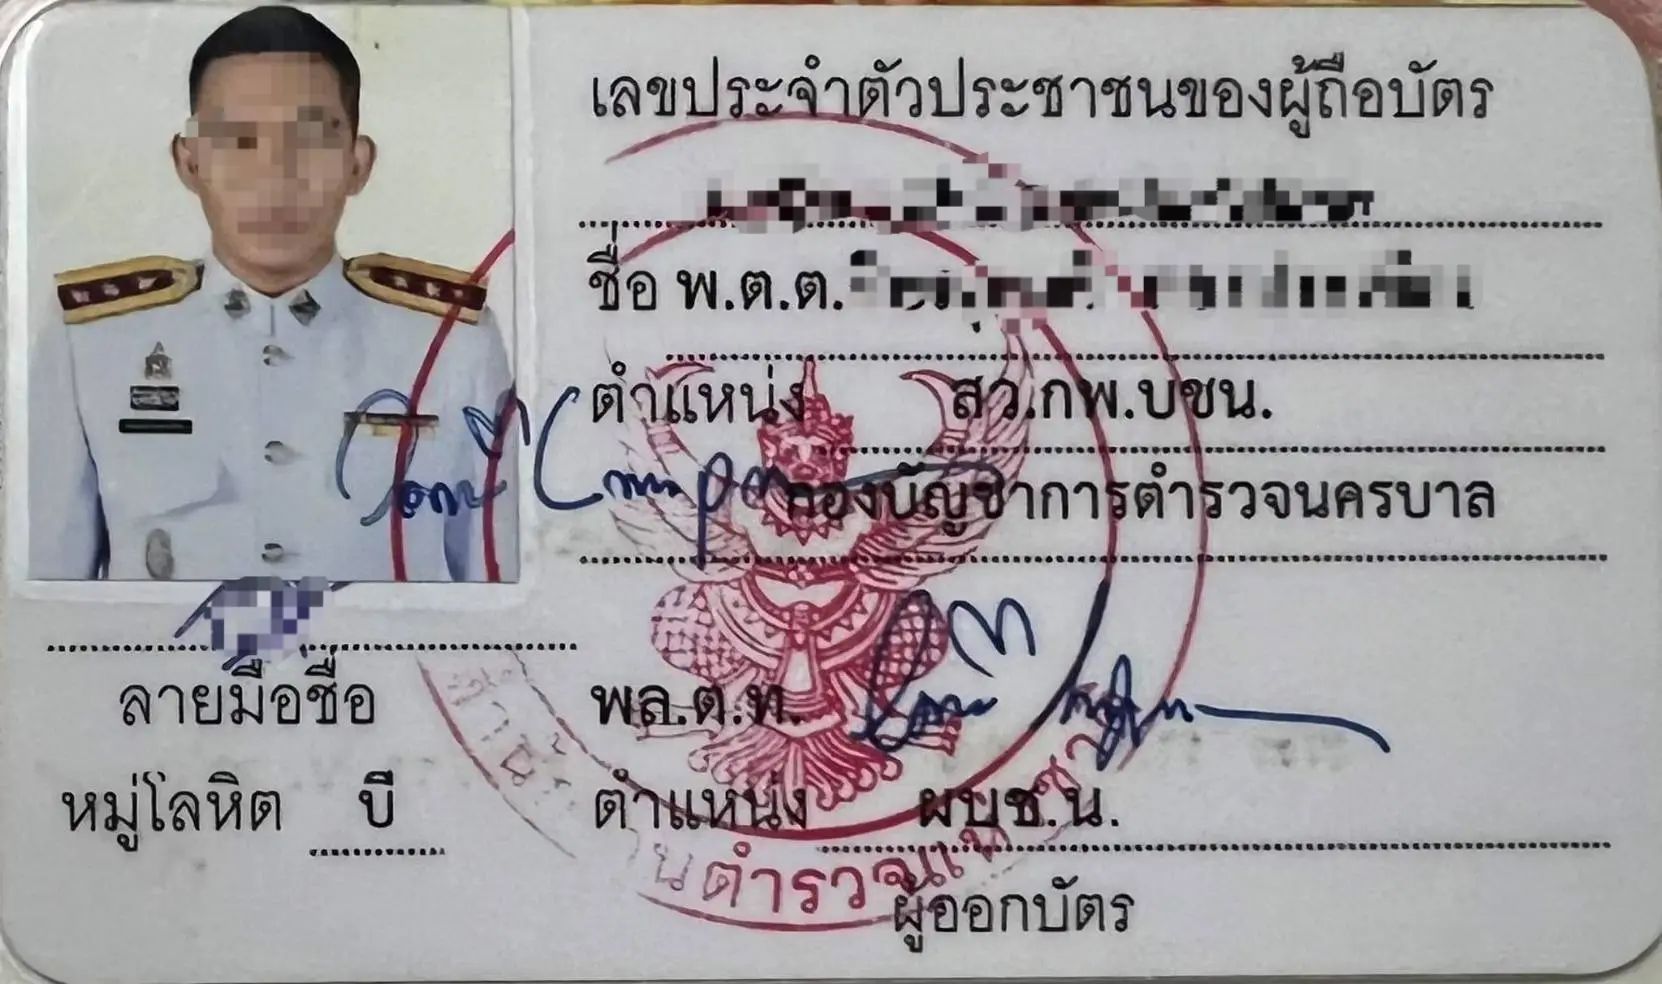 เลขประจำตัวประชาชนของผู้ถือบัตร
ชื่อ พ.ต.ต.
ตำแหน่ง สว.กพ.บช น.
กองบัญชาการตำรวจนครบาล
ลายมือชื่อ
พล.ต.ท.
หมู่โลหิต บี
ตำแหน่ง ผบช.น.
ผู้ออกบัตร
ตำรวจแห่งชา